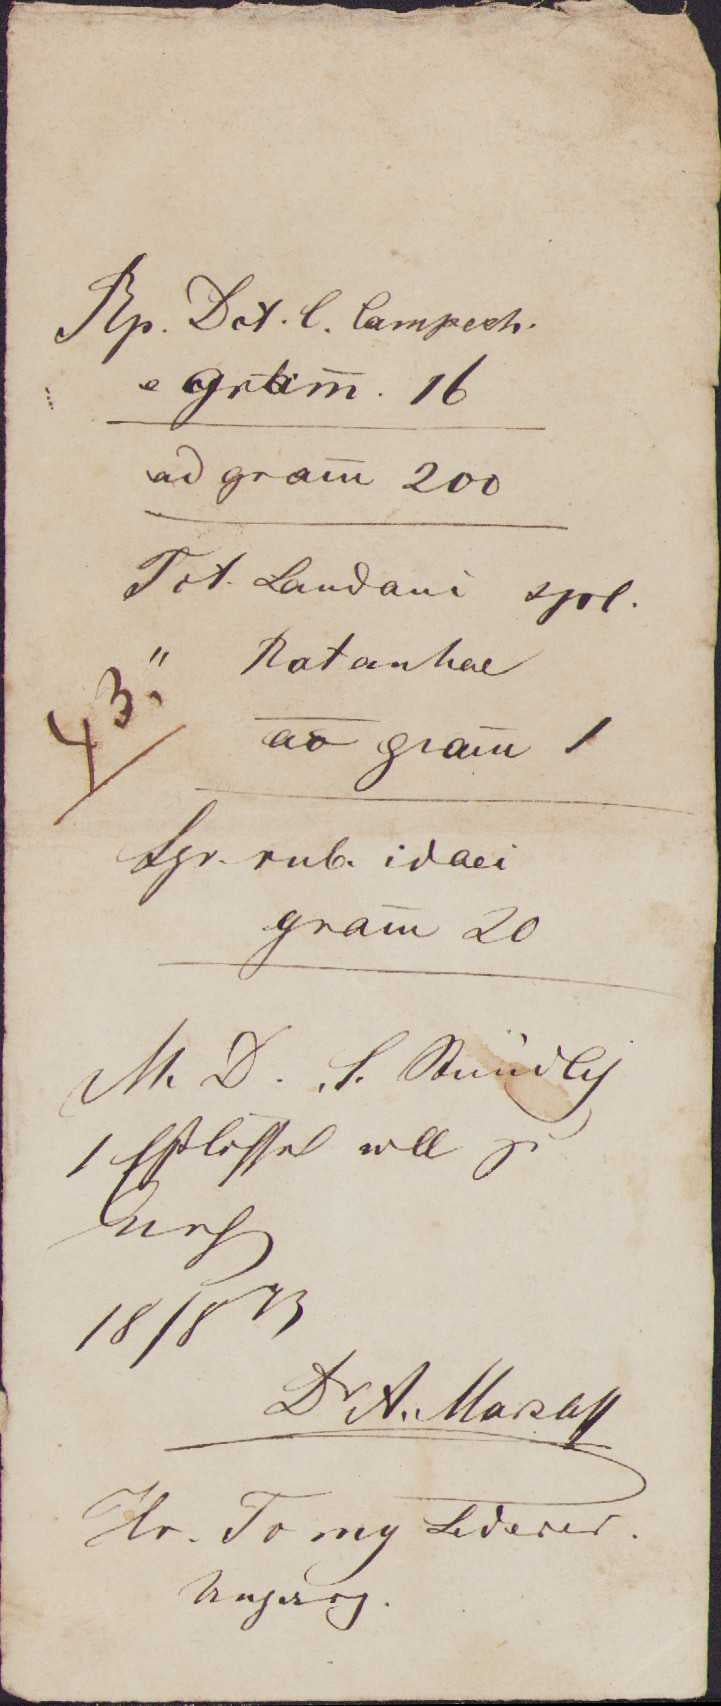 Rp. Dct. l. Campech.
e gram̄. 16
ad gram̄ 200
Tct. Laudani spl.
" Ratanhae
aa gram̄ 1
43.
Syr. rub. idaei
gram̄ 20
M. D. S. Stündlich
1 Eßlöffel voll z.
18/8 73
Dr A.
Hr. Tomy Lederer.